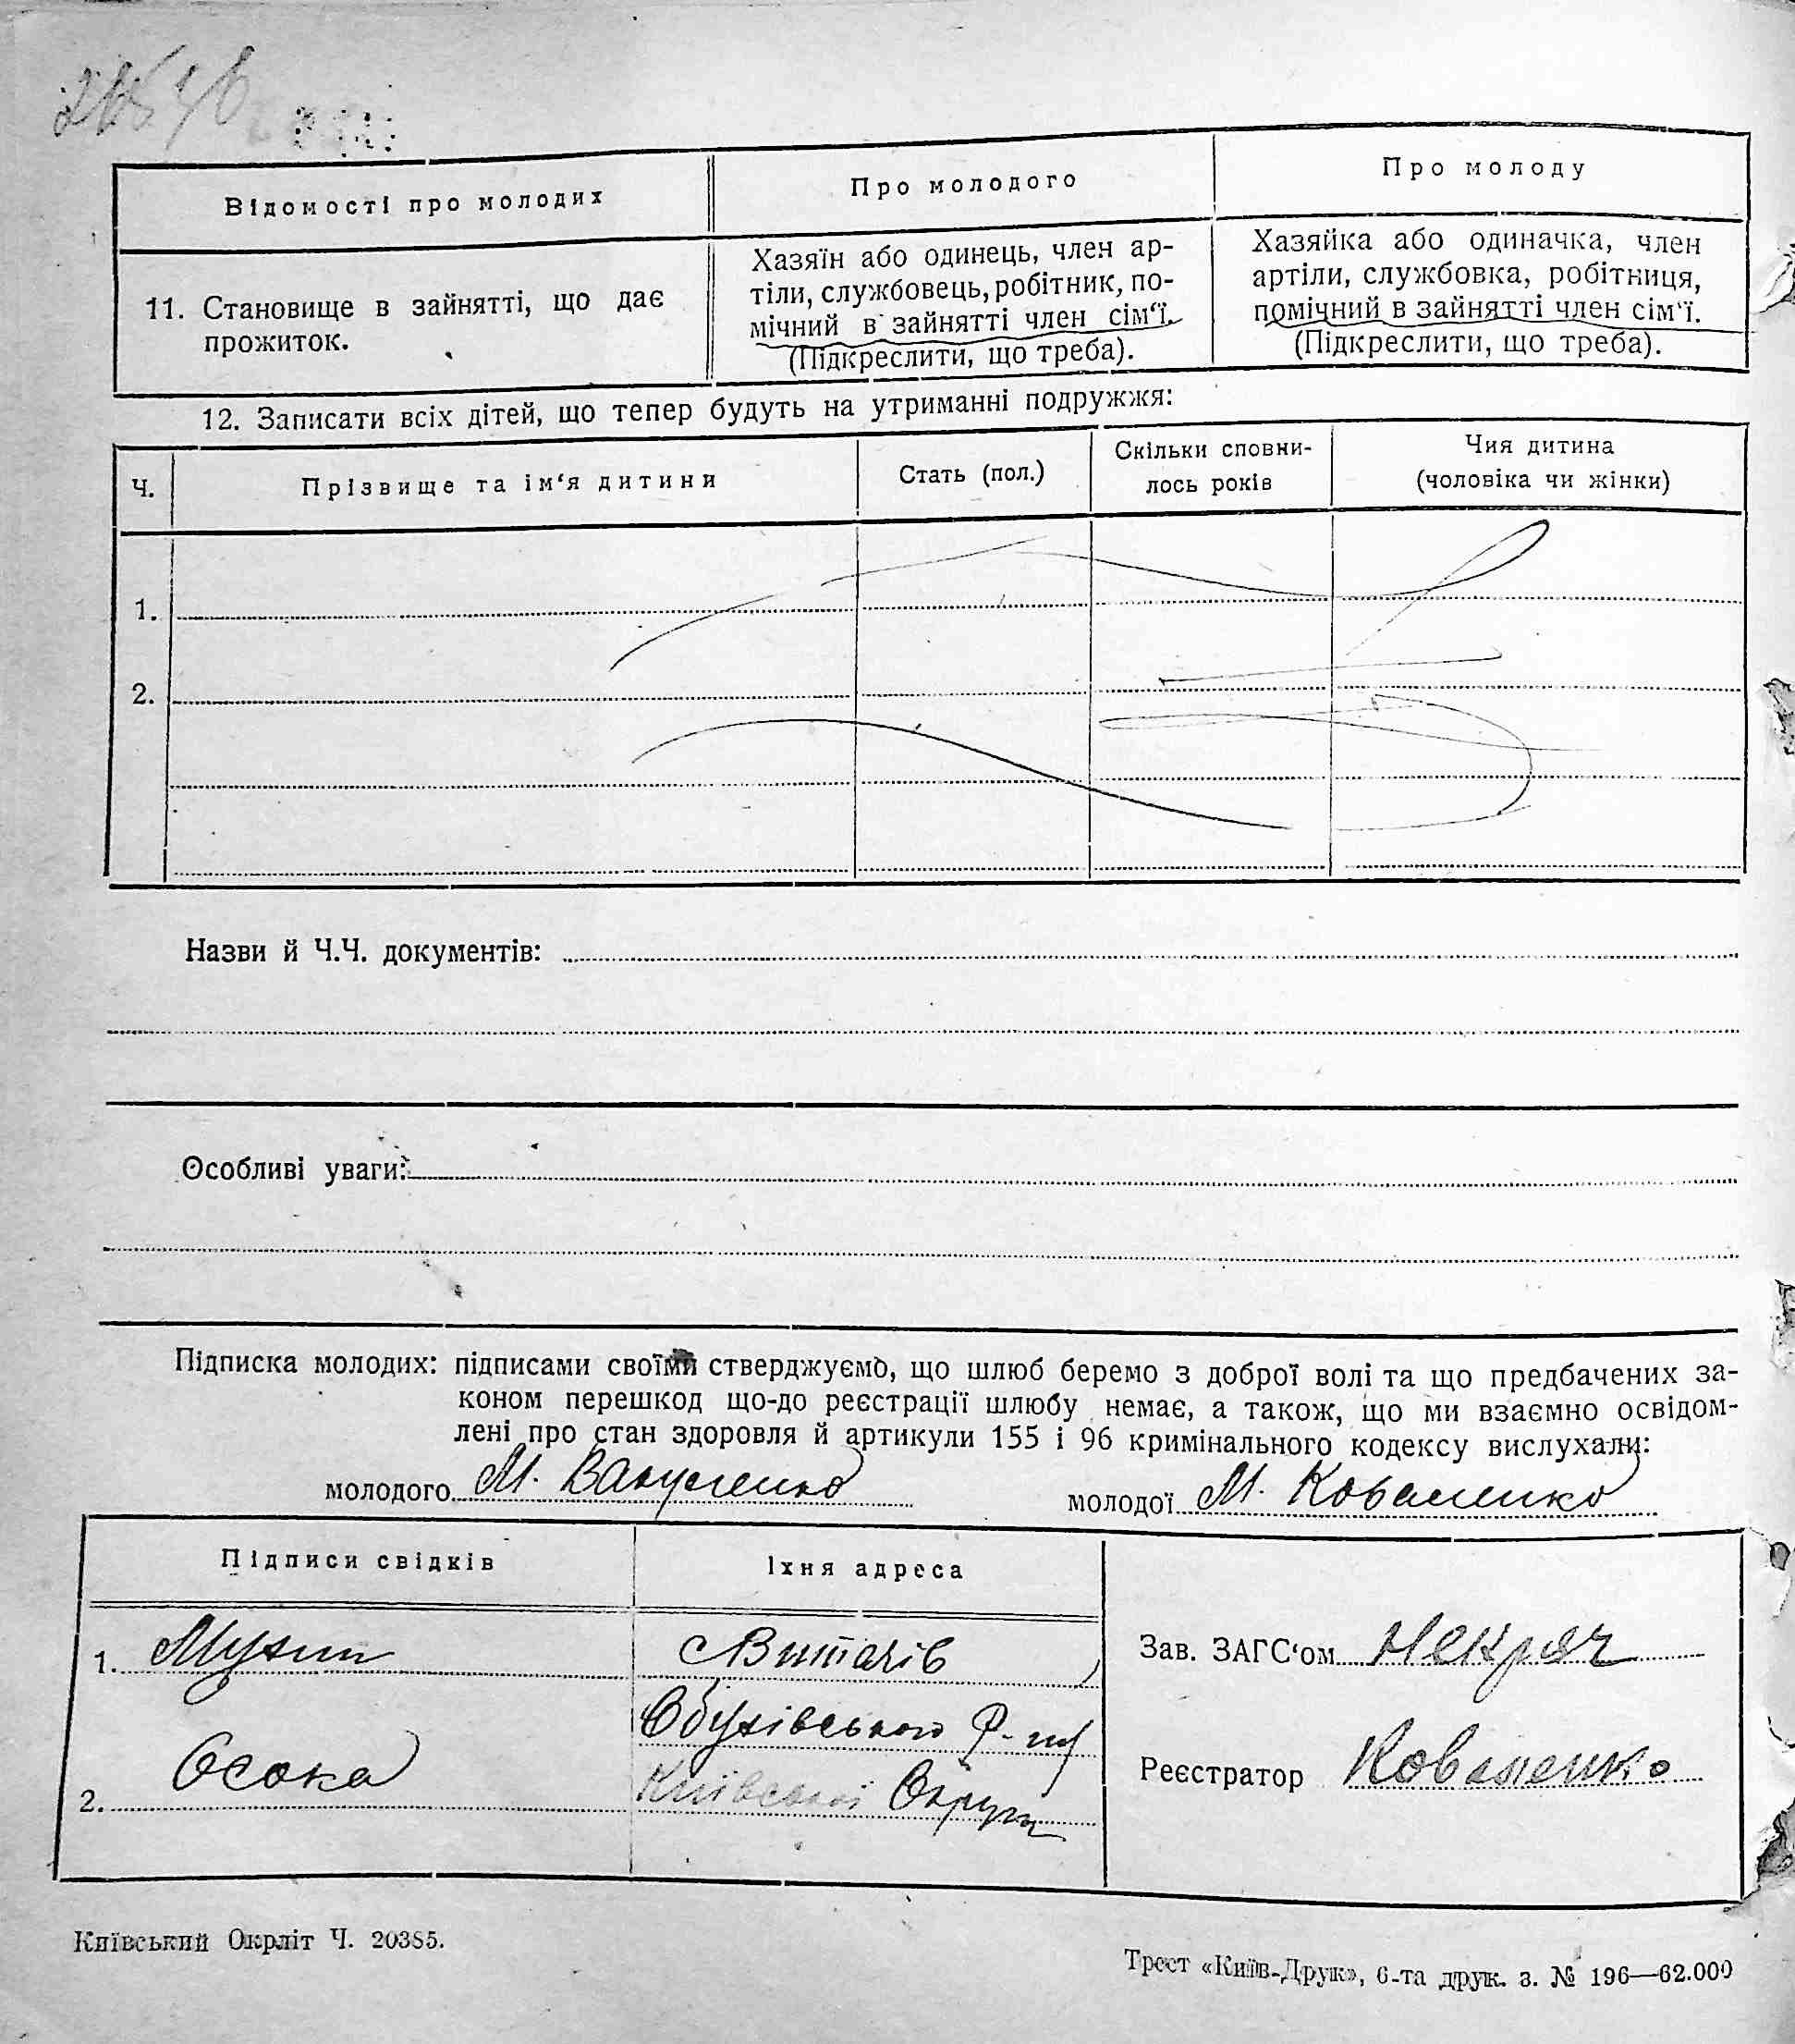 Відомості про молодих
Про молодого
Про молоду
11. Становище в зайнятті, що дає
прожиток.
Хазяїн або одинець, член ар-
тіли, службовець, робітник, по-
мічний в зайнятті член сім‘ї.
(Підкреслити, що треба).
Хазяйка або одиначка, член
артіли, службовка, робітниця,
помічний в зайнятті член сім‘ї.
(Підкреслити, що треба).
12. Записати всіх дітей, що тепер будуть на утриманні подружжя:
Ч.
Прізвище та ім‘я дитини
Стать (пол.)
Скільки сповни-
лось років
Чия дитина
(чоловіка чи жінки)
1.
2.
Назви й Ч.Ч. документів:
Особливі уваги:
Підписка молодих: підписами своїми стверджуємо, що шлюб беремо з доброї волі та що предбачених за-
коном перешкод що-до реєстрації шлюбу немає, а також, що ми взаємно освідом-
лені про стан здоровля й артикули 155 і 96 кримінального кодексу вислухали:
молодого М. Вакуленко
молодої М. Коваленко
Підписи свідків
Їхня адреса
1.
с Витачів
Обухівського Р-ну
2. Осока
Київської Округи
Зав. ЗАГС‘ом Некряч
Реєстратор Коваленко
Київський Окрліт Ч. 20385.
Трест «Київ-Друк», 6-та друк. з. № 196—62.000